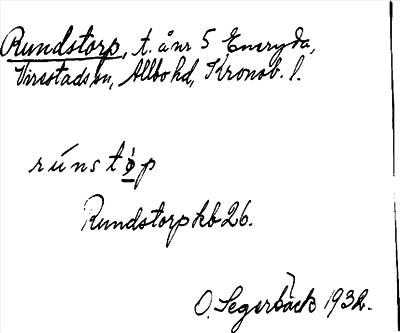 Rundstorp, t. å nr 5 Eneryda,
Virestads sn, Allbo hd, Kronob. l.
rúnstò̩p
Rundstorp hb 26.
O. Segerbäck 1932.